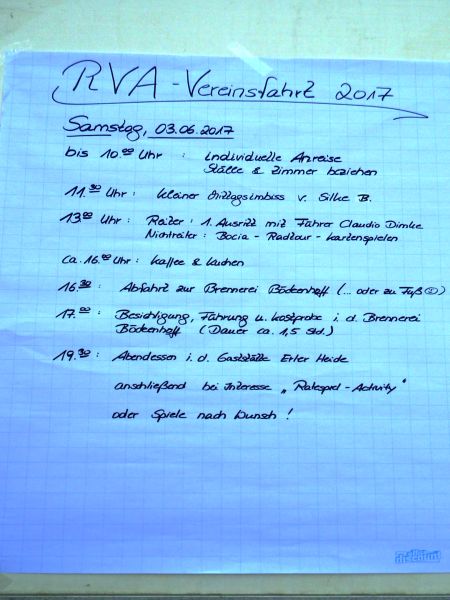 RVA - Vereinsfahrt 2017
Samstag, 03.06.2017
bis 10.00 Uhr : individuelle Anreise
Ställe & Zimmer beziehen
11.30 Uhr : kleiner Mittagsimbiss v. Silke B.
13.00 Uhr : Reiter : 1. Ausritt mit Führer Claudio Dimke
Nichtreiter : Bocia - Radtour - Kartenspielen
ca. 16.00 Uhr : Kaffee & Kuchen
16.30 : Abfahrt zur Brennerei Böckenhoff (... oder zu Fuß ☺)
17.00 : Besichtigung, Führung u. Kostprobe i. d. Brennerei
Böckenhoff (Dauer ca. 1,5 Std.)
19.30 : Abendessen i. d. Gaststätte Erler Heide
anschließend bei Interesse „Ratespiel-Activity"
oder Spiele nach Wunsch !
discount